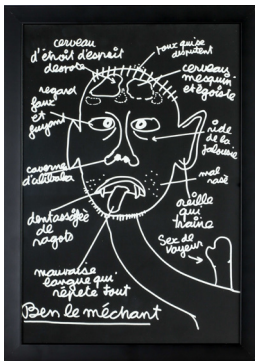 cerveau
d'étroit d'esprit
despote
poux qui se
disputent
cerveau
mesquin
et égoïste
regard
faux
et
fuyant
ride
de la
jalousie
caverne
d'alibaba
mal
rasé
dentassoiffée
de
ragots
oreille
qui
traîne
Sexe de
voyeur
mauvaise
langue qui
répète tout
Ben le méchant